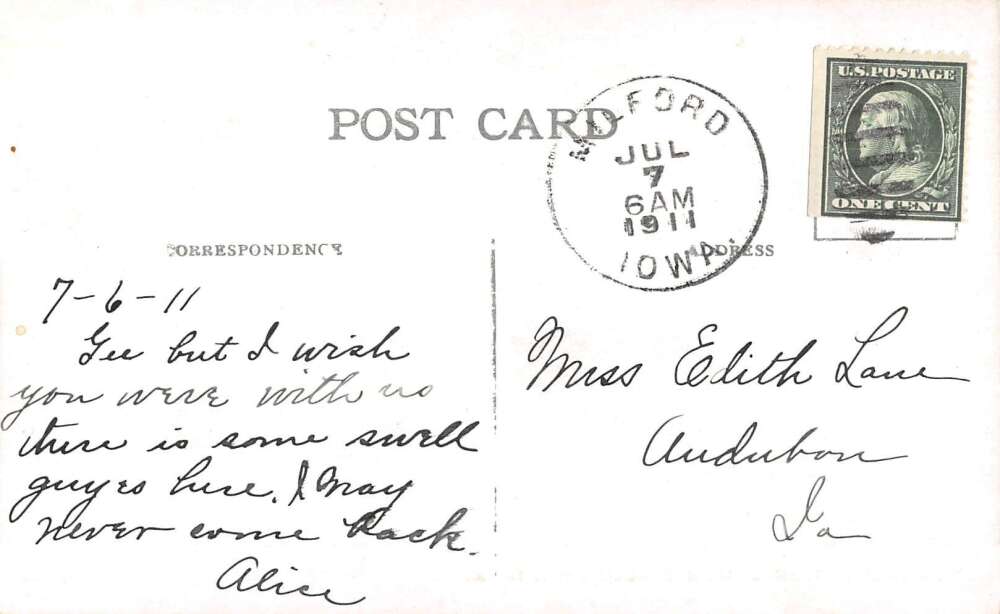 POST CARD
MILFORD
JUL
7
6AM
1911
IOWA.
U.S. POSTAGE
ONE CENT
CORRESPONDENCE
ADDRESS
7-6-11
Gee but I wish
you were with us
there is some swell
guyes here. I may
never come back.
Alice
Miss Edith Lane
Audubon
Ia